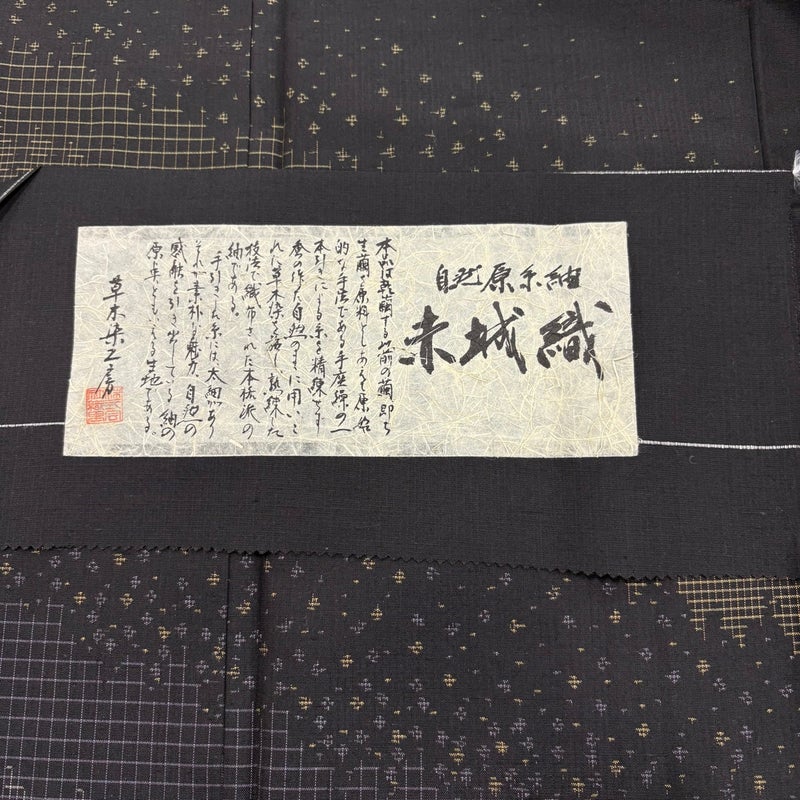 自然原糸紬
赤城織
本品は乾繭する以前の繭即ち
生繭を原料としあくまで原始
的な手法である手座繰の一
本引きによる糸を精練せず
蚕の作った自然のままに用いこ
れに草木染を施し熟練した
技法で織布された本格派の
紬である。
手引きした糸には、太細があり
それが素朴な魅力、自然の
感触を引き出している紬の
原点ともいえる生地である。
草木染工房